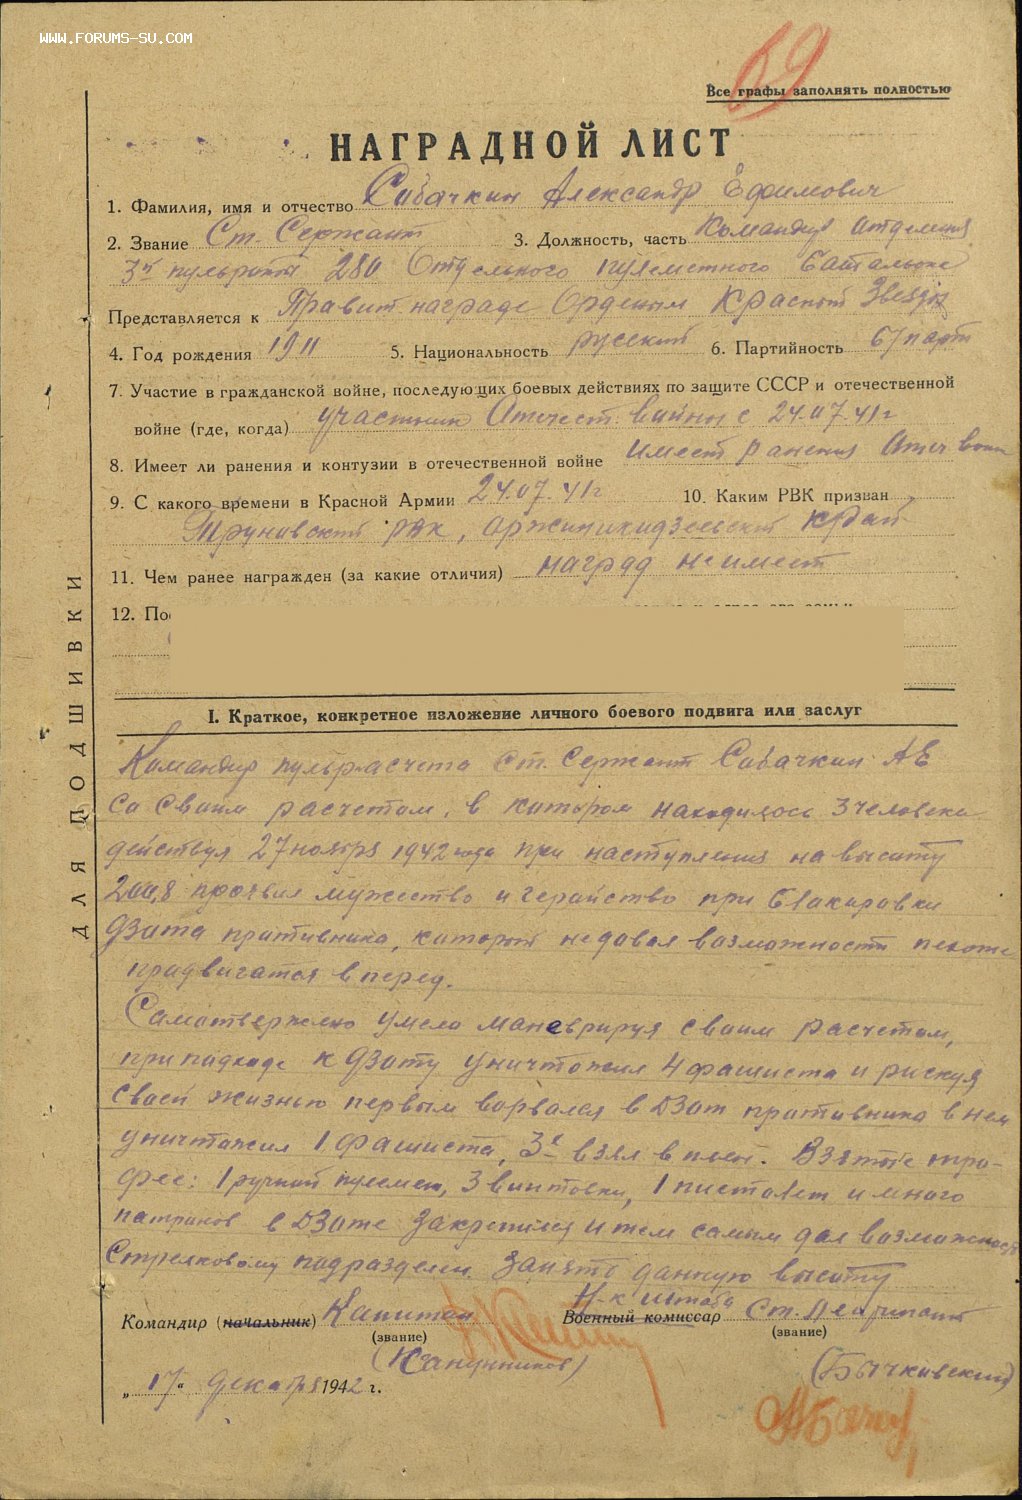 WWW.FORUMS-SU.COM
69
Все графы заполнять полностью
НАГРАДНОЙ ЛИСТ
1. Фамилия, имя и отчество Сабачкин Александр Ефимович
2. Звание Ст. Сержант 3. Должность, часть Командир отделения
3й пульроты 280 Отдельного пулеметного баталиона
Представляется к Правит. награде Орденом Красной Звезды
4. Год рождения 1911 5. Национальность русский 6. Партийность б/парт
7. Участие в гражданской войне, последующих боевых действиях по защите СССР и отечественной
войне (где, когда) участник Отечест. войны с 24.07.41г
8. Имеет ли ранения и контузии в отечественной войне имеет ранения Отеч войне
9. С какого времени в Красной Армии 24.07.41г 10. Каким РВК призван
Труновский РВК, Оржиникидзевский край
11. Чем ранее награжден (за какие отличия) наград не имеет
12. Пос
ДЛЯ ПОДШИВКИ
I. Краткое, конкретное изложение личного боевого подвига или заслуг
Командир пульрасчета Ст. Сержант Сабачкин АЕ
со своим расчетом, в котором находилось 3 человека
действуя 27 ноября 1942 года при наступления на высоту
200,8 проявил мужество и геройство при блакировки
Дзота противника, который не довал возможности пехоте
продвигатся вперед.
Самотвержено умело маневрируя своим расчетом,
при подходе к дзоту уничтожил 4 фашиста и рискуя
своей жизнью первым ворвался в Дзот противника в нем
уничтожил 1 фашиста, 3х взял в плен. Взятые тро-
феи: 1 ручной пулемет, 3 винтовки, 1 пистолет и много
патронов в ДЗоте закрепился и тем самым дал возможность
Стрелковому подразделен. занять данную высоту
Командир (начальник) Капитан Н-к штаба Военный комиссар Ст. Лейтинант
(звание) (звание)
(Канунников) (Бычковский)
„17" декабря 1942 г.